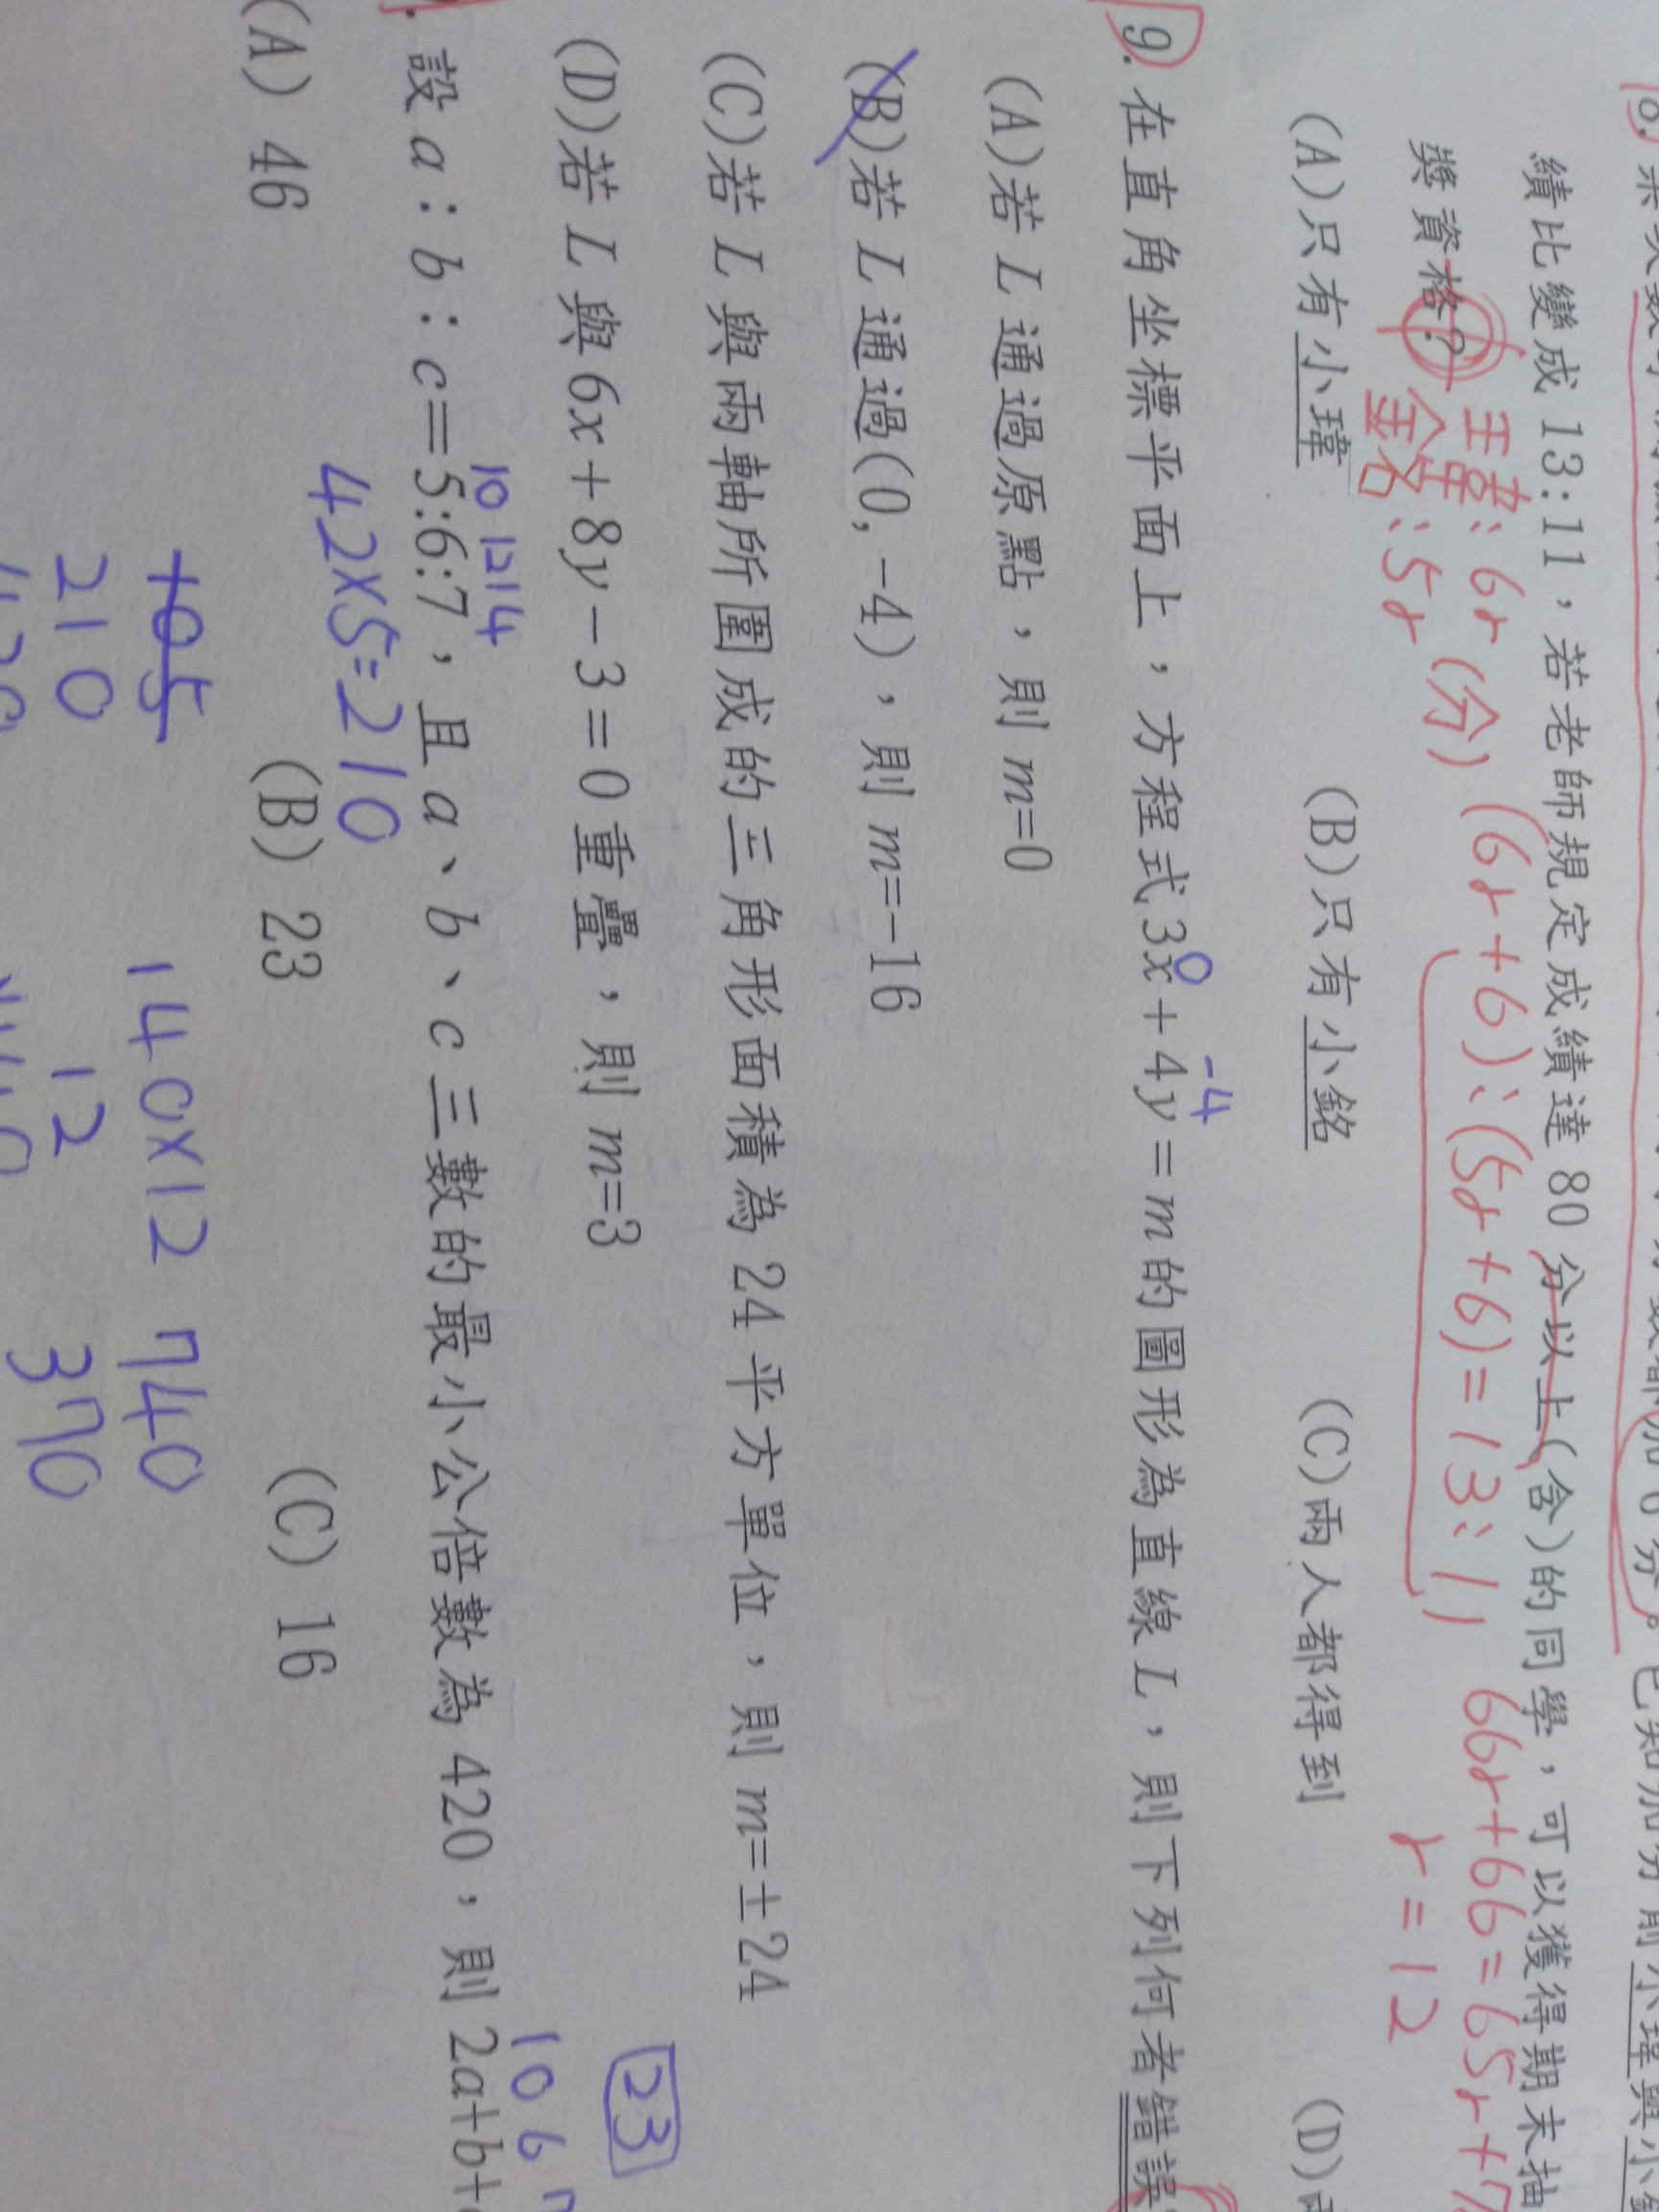 績比變成 13:11，若老師規定成績達 80 分以上(含)的同學，可以獲得期末抽
獎資格?
王韋: 6r (分) (6r+6):(5r+6)=13:11 66r+66=65r+7
金名: 5r r=12
(A)只有小瑋 (B)只有小銘 (C)兩人都得到 (D)
9. 在直角坐標平面上，方程式3x+4y=m的圖形為直線L，則下列何者錯誤
0 -4
(A)若L通過原點，則m=0
(B)若L通過(0,-4)，則m=-16
(C)若L與兩軸所圍成的三角形面積為24平方單位，則m=±24
(D)若L與6x+8y-3=0重疊，則m=3
23
10 12 14
10 6 7
設a:b:c=5:6:7，且a、b、c三數的最小公倍數為420，則2a+b+
42×5=210
(A) 46 (B) 23 (C) 16
105 140×12 740
210 12 370